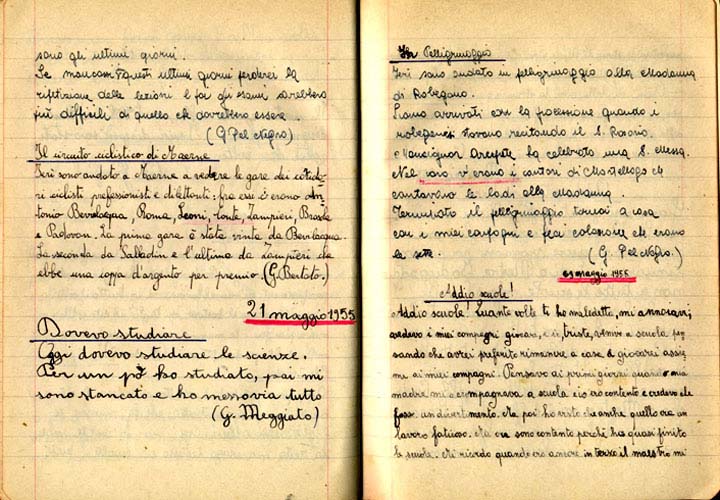 sono gli ultimi giorni.
Se mancassi questi ultimi giorni perderei la
ripetizione delle lezioni e poi gli esami sarebbero
più difficili di quello che dovrebbero essere.
(G. Pel Negro)
Il circuito ciclistico di Maerne
Ieri sono andato a Maerne a vedere le gare dei
ciclisti professionisti e dilettanti: fra essi c'erano An
tonio Bevilacqua, Roma, Leoni, Conte, Zampieri, Brasola
e Padovan. La prima gara è stata vinta da Bevilacqua.
La seconda da Salladin e l'ultima da Zampieri che
ebbe una coppa d'argento per premio. (G. Bertoto.)
21 maggio 1955
Dovevo studiare
Oggi dovevo studiare le scienze.
Per un pò ho studiato, poi mi
sono stancato e ho messo via tutto
(G. Meggiato)
In Pelligrinaggio
Ieri sono andato in pelligrinaggio alla Madonna
di Robegano.
Siamo arrivati con la processione quando i
robeganesi stavano recitando il S. Rosario.
Monsignor ha celebrato una S. Messa.
Nel coro v'erano i cantori di Martellago che
cantavano le lodi alla Madonna.
Terminato il pelligrinaggio tornai a casa
con i miei compagni e feci colazione che erano
le sette.
(G. Pel Negro.)
maggio 1955
Addio scuole!
Addio scuole! Quante volte ti ho maledetta, mi annoiavi;
vedevo i miei compagni giocare, e io, triste, venivo a scuola pen
sando che avrei preferito rimanere a casa a giocare assie
me ai miei compagni. Pensavo ai primi giorni quando mia
madre mi accompagnava a scuola e io ero contento e credevo che
fosse un divertimento. Ma poi ho visto che anche quello era un
lavoro faticoso. Ma ora sono contento perchè ho quasi finito
le scuole. Mi ricordo quando ero ancora in terza il maestro mi